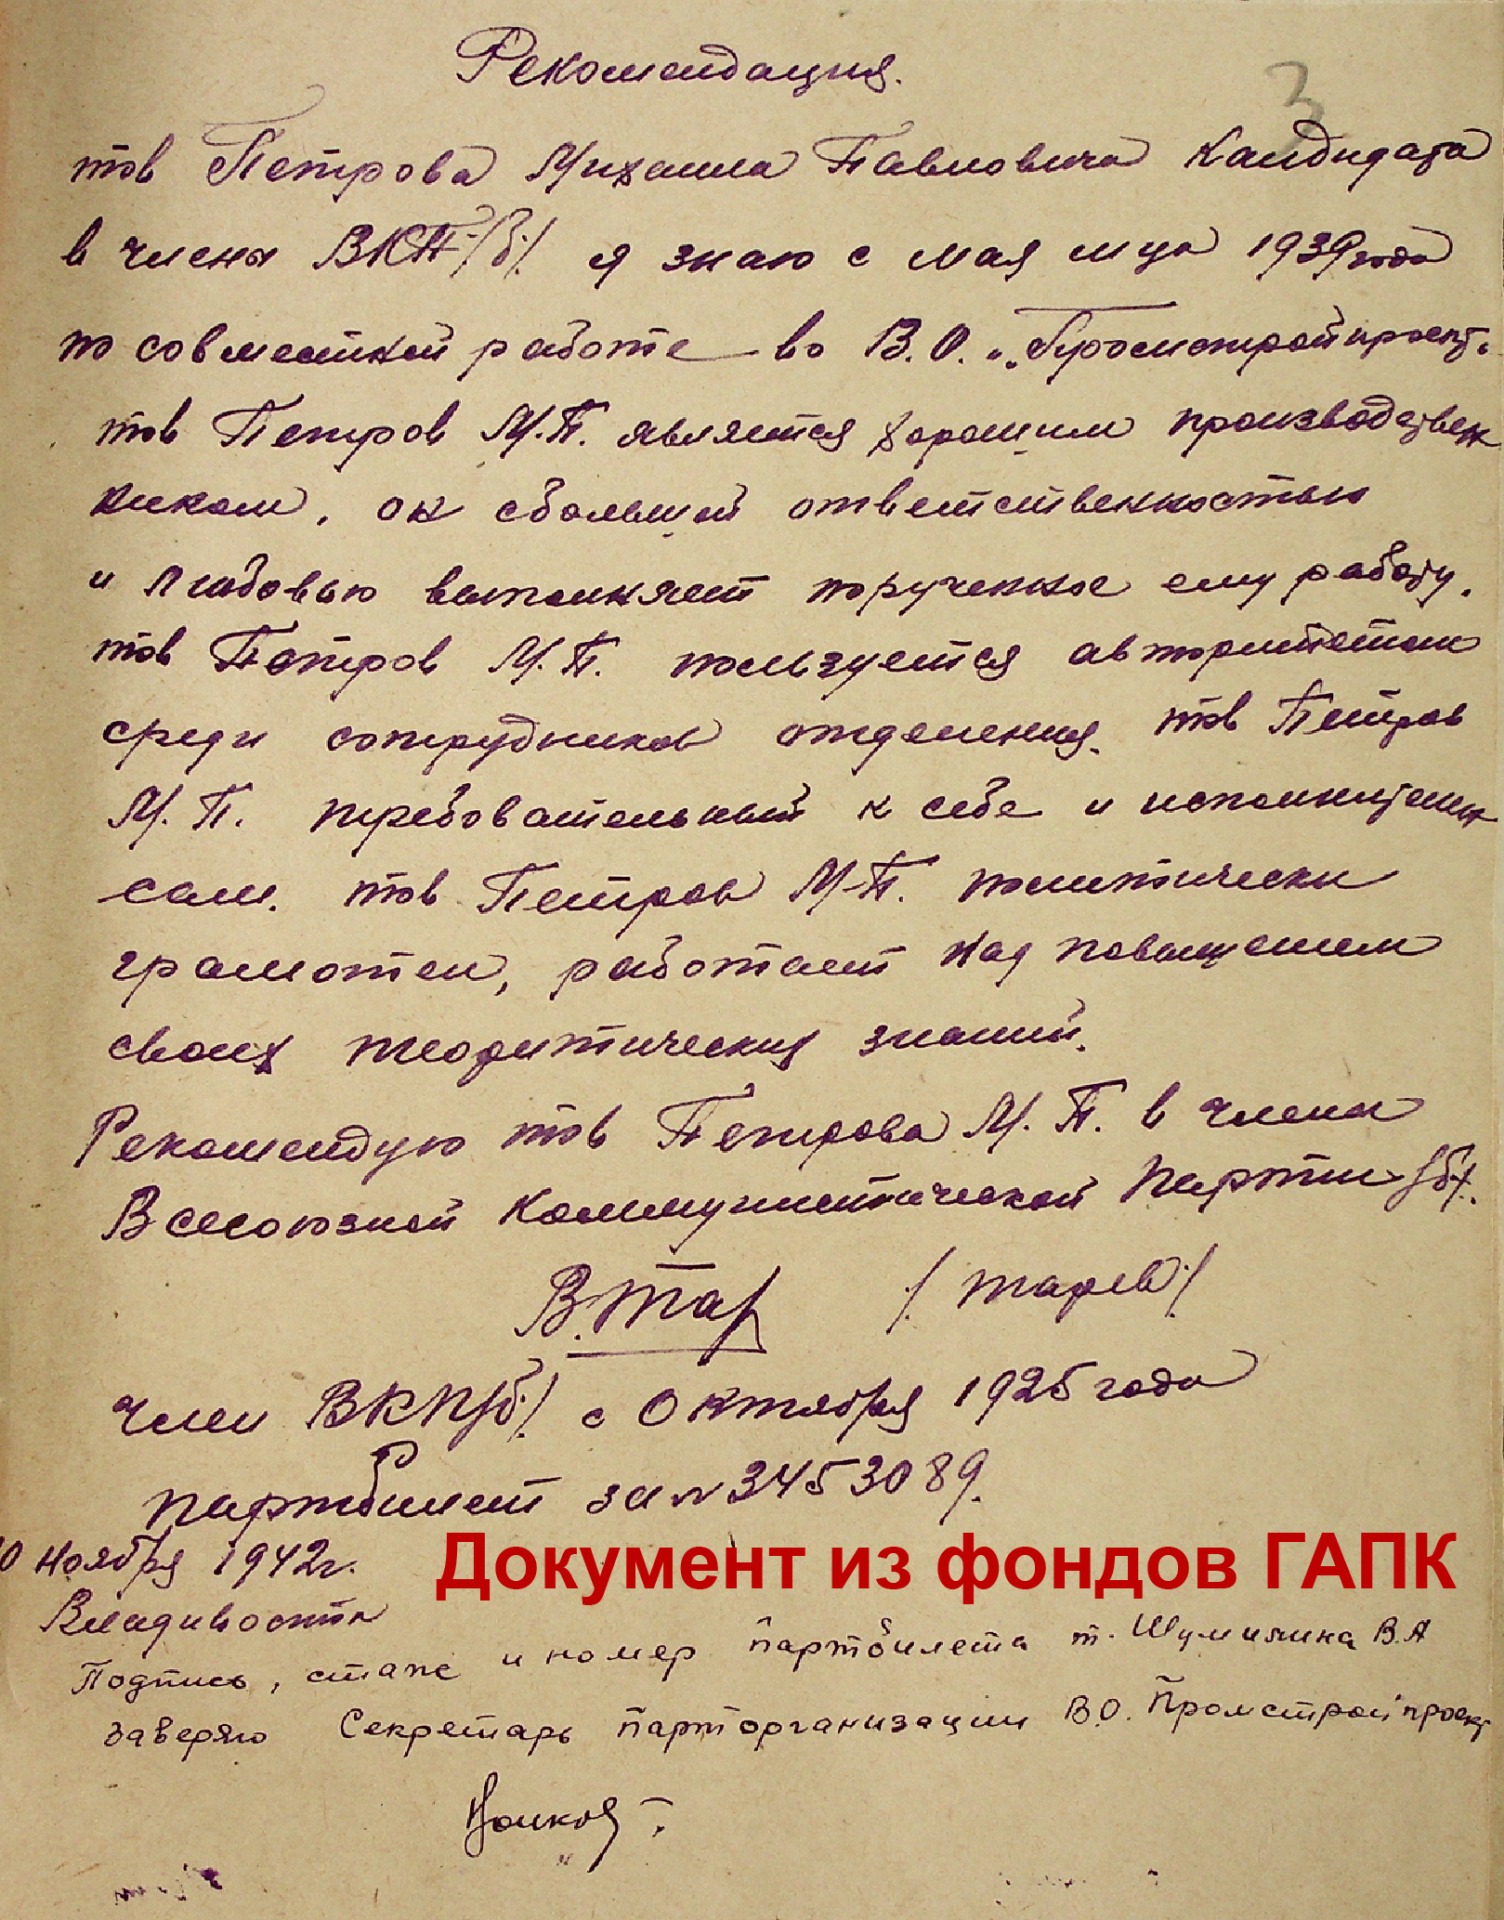 Рекомендация.
3
тов Петрова Михаила Павловича Кандидата
в члены ВКП/б/. я знаю с мая м-ца 1939 года
по совместной работе во В.О. „Промстройпроект".
тов Петров М.П. является хорошим производствен
ником, он с большой ответственностью
и любовью выполняет порученное ему работу.
тов Петров М.П. пользуется авторитетом
среди сотрудников отделения. тов Петров
М.П. требовательный к себе и исполнителен
сам. тов Петров М.П. политически
грамотен, работает над повышением
своих теоритических знаний.
Рекомендую тов Петрова М.П. в члены
Всесоюзной Коммунистической Партии /б/.
В. Тар
член ВКП/б/ с Октября 1925 года
партбилет за № 3453089.
10 ноября 1942 г.
Документ из фондов ГАПК
Владивосток
Подпись, стаже и номер партбилета т. В.А
заверяю Секретарь парторганизации В.О. Промстройпроект